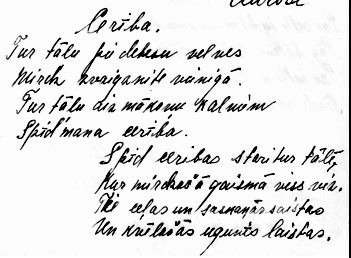 Cerība.
Tur tālu pie debesu velves
Mirdz zvaigznīte vienīgā.
Tur tālu aiz mākoņu kalniem
Spīd mana cerība.
Spīd cerības stari tur tālē,
Kur mirdzošā gaismā viss vīz.
Tie ceļas un saskaņās saistās
Un kvēlošās ugunīs laistās.